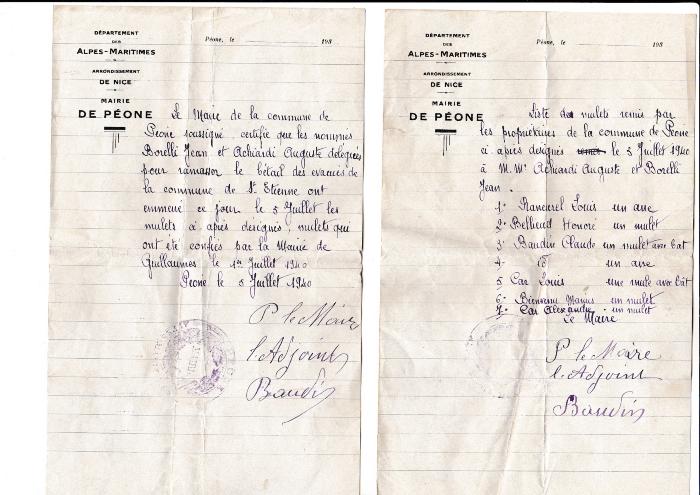 DÉPARTEMENT
DES
ALPES-MARITIMES
ARRONDISSEMENT
DE NICE
MAIRIE
DE PÉONE
Péone, le 193
Le Maire de la commune de
Péone soussigné certifie que les nommés
Borelli Jean et Achiardi Auguste délégués
pour ramasser le bétail des évacués de
la commune de St Etienne ont
emmené ce jour le 5 Juillet les
mulets ci après désignés, mulets qui
ont été confiés par la Mairie de
Guillaumes le 1er Juillet 1940
Péone le 5 Juillet 1940
P le Maire
l'Adjoint
Baudin
DÉPARTEMENT
DES
ALPES-MARITIMES
ARRONDISSEMENT
DE NICE
MAIRIE
DE PÉONE
Péone, le 193
Liste des mulets remis par
les propriétaires de la commune de Péone
ci après désignés le 5 Juillet 1940
à M. Mr Achiardi Auguste et Borelli
Jean.
1° Rancurel Louis un ane
2° Belleud Honoré un mulet
3° Baudin Claude un mulet avec bât
4- id un ane
5 Car Louis une mule avec bât
6° Bienvenu Marius un mulet
7° Car Alexandre un mulet
Le Maire
P le Maire
l'Adjoint
Baudin